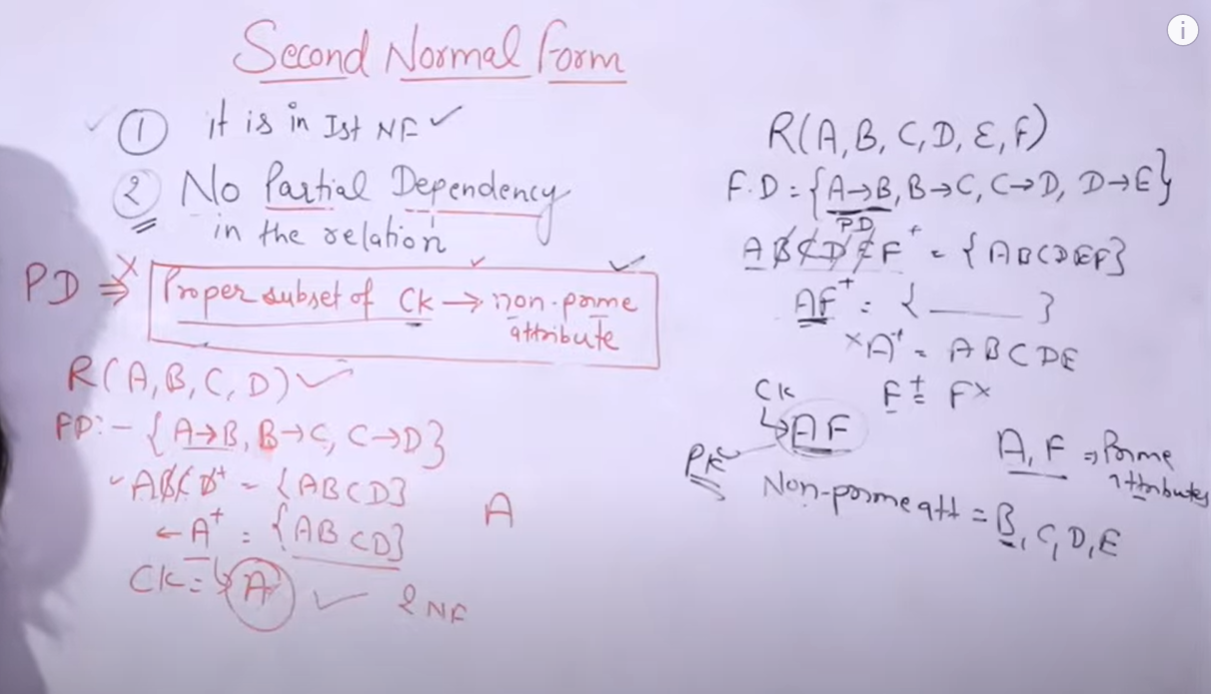 Second Normal Form
① it is in Ist NF ✓
② No Partial Dependency
in the relation
PD ⇒ Proper subset of Ck → non-prime
attribute
R(A, B, C, D) ✓
FD:- {A→B, B→C, C→D}
ABCD⁺ = {ABCD}
← A⁺ = {ABCD}
A
Ck = A ✓ 2NF
R(A, B, C, D, E, F)
F.D = {A→B, B→C, C→D, D→E}
PD
ABCDEF⁺ = {ABCDEF}
AF⁺ = { ______ }
×A⁺ = ABCDE
F⁺ = F×
Ck
AF
PK
A, F ⇒ Prime
attributes
Non-prime att = B, C, D, E
i